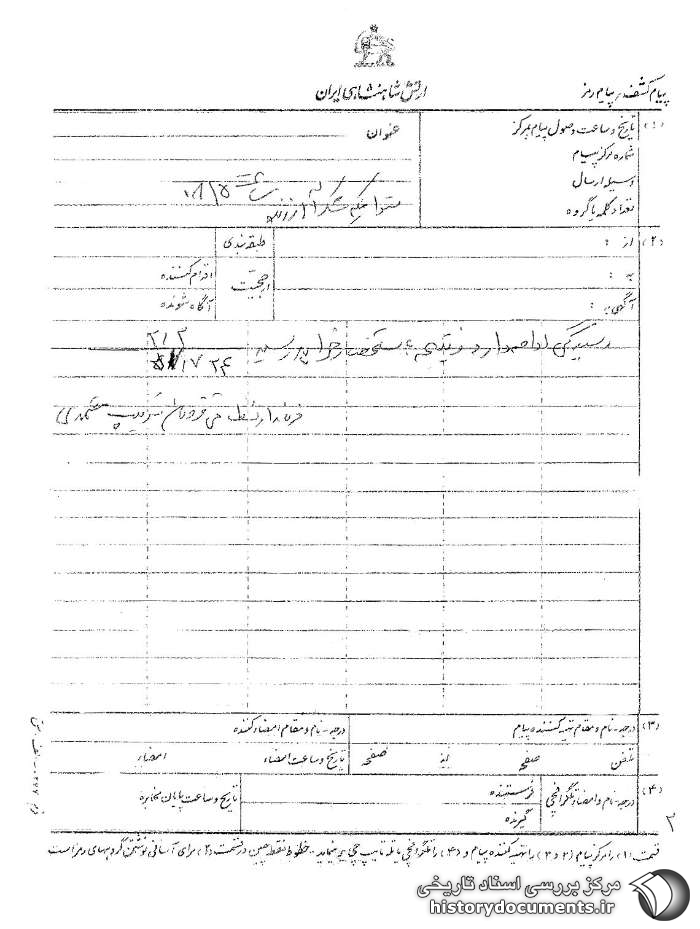 ارتش شاهنشاهی ایران
پیام کشف - پیام رمز
(۱) تاریخ و ساعت وصول پیام بمرکز
عنوان
شماره مرکز پیام
وسیله ارسال
تعداد کلمه یا گروه
(۲) از :
طبقه بندی
به :
ارجحیت
اقدام کننده
آگهی به :
آگاه شونده
رسیدگی ادامه دارد نتیجه باستحضار خواهد رسید
۲۱۲
۱۷ ۲۴
فرماندار نظامی قزوین سرتیپ معتمدی
(۳) درجه - نام و مقام تهیه کننده پیام
درجه - نام و مقام امضاء کننده
تلفن
صفحه
از
صفحه
تاریخ و ساعت امضاء
امضاء
(۴) درجه - نام و امضاء تلگرافچی
فرستنده
گیرنده
تاریخ و ساعت پایان مخابره
۲
قسمت (۱) را مرکز پیام (۲ و ۳) را تهیه کننده پیام و (۴) را تلگرافچی یا تله تایپ چی پر مینماید - خطوط نقطه چین در قسمت (۲) برای آسانی نوشتن گروههای رمز است
مرکز بررسی اسناد تاریخی
historydocuments.ir